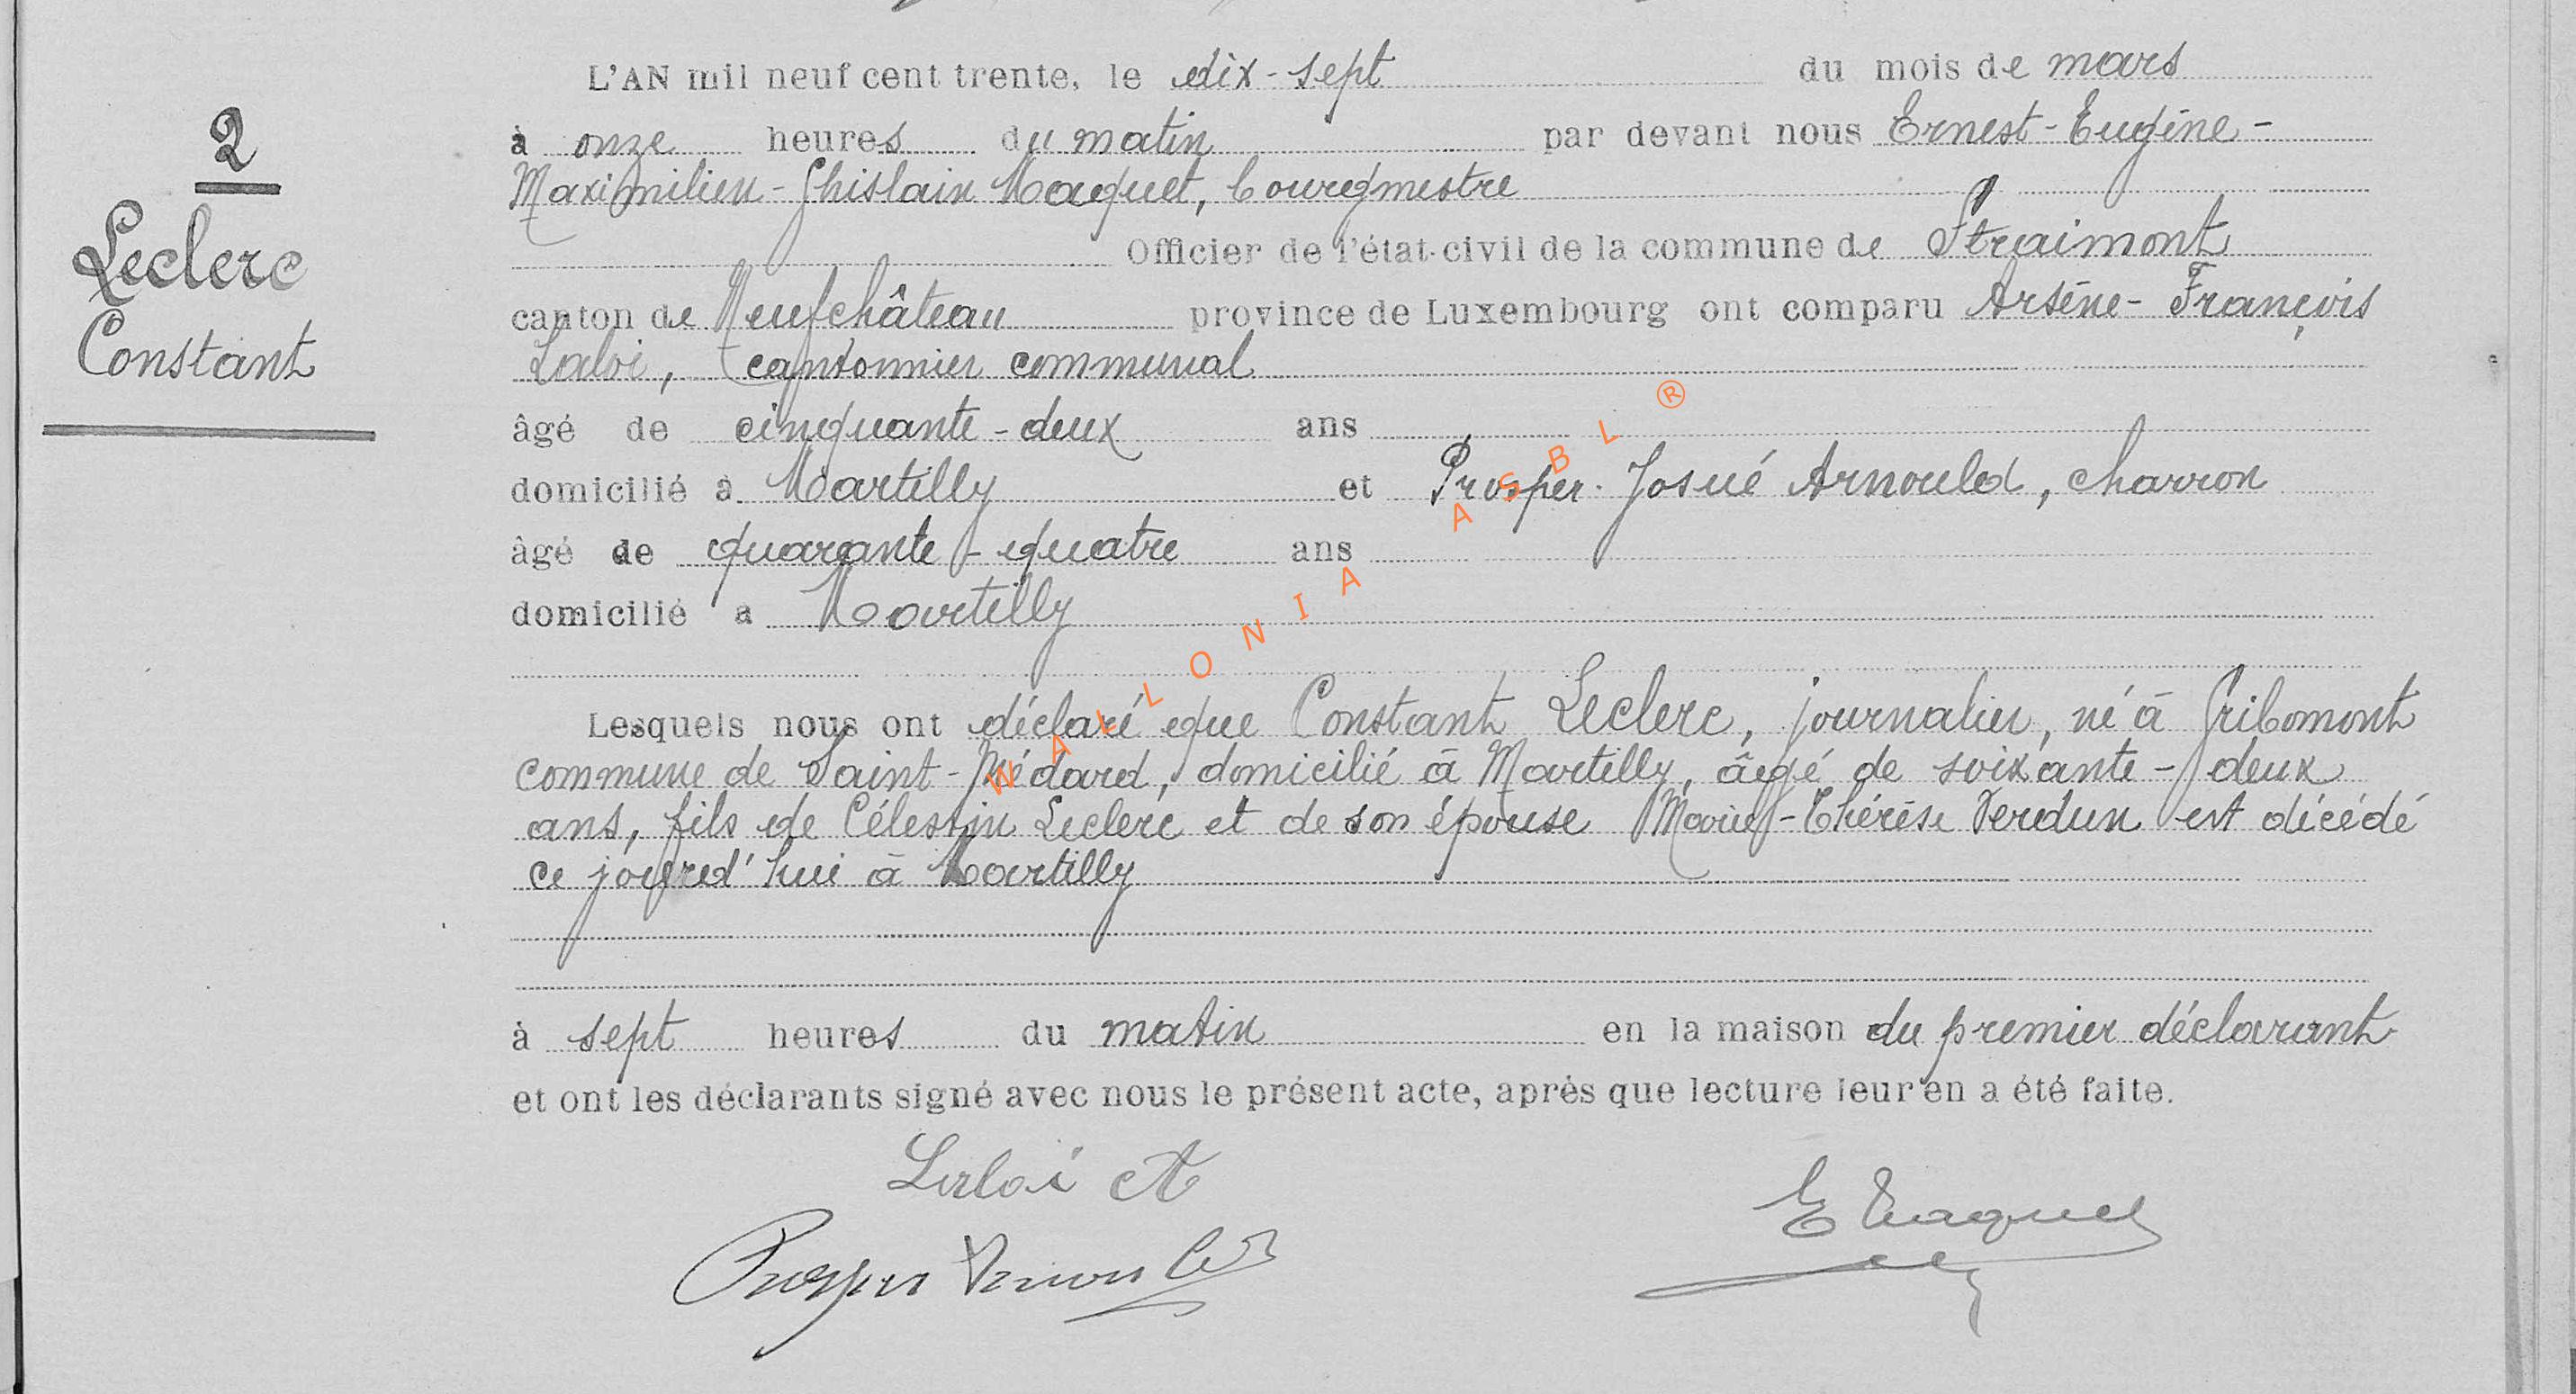 2
Leclerc
Constant
L'AN mil neuf cent trente, le dix-sept du mois de mars
à onze heures du matin par devant nous Ernest-Eugène-
Maximilien-Ghislain Maquet, bourgmestre
Officier de l'état-civil de la commune de Straimont
canton de Neufchâteau province de Luxembourg ont comparu Arsène-François
Laloi, cantonnier communal
âgé de cinquante-deux ans
domicilié à Martilly et Prosper-Josué Arnould, charron
âgé de quarante-quatre ans
domicilié a Martilly
Lesquels nous ont déclaré que Constant Leclerc, journalier, né à Gribomont
commune de Saint-Médard, domicilié à Martilly, âgé de soixante-deux
ans, fils de Célestin Leclerc et de son épouse Marie-Thérèse Verdun est décédé
ce jourd'hui à Martilly
à sept heures du matin en la maison du premier déclarant
et ont les déclarants signé avec nous le présent acte, après que lecture leur en a été faite.
Laloi A
Prosper Arnould
E Maquet
WALLONIA ASBL ®